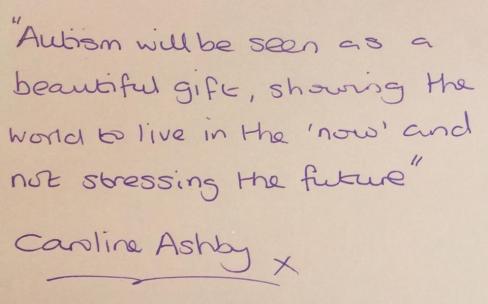 "Autism will be seen as a
beautiful gift, showing the
world to live in the 'now' and
not stressing the future"
Caroline Ashby x